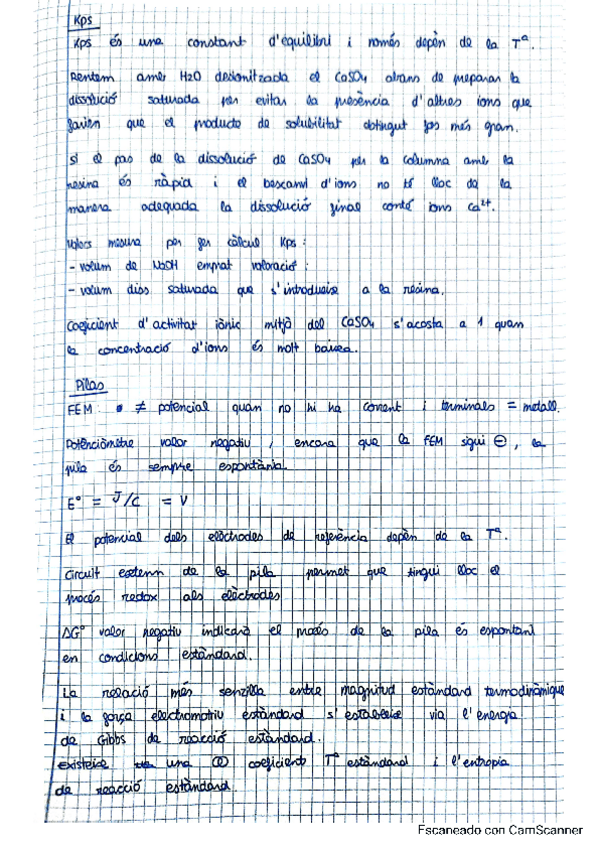 Kps
Kps és una constant d'equilibri i només depèn de la Tª.
Rentem amb H2O desionitzada el CaSO4 abans de preparar la
dissolució saturada per evitar la presència d'altres ions que
farien que el producte de solubilitat obtingut fos més gran.
Si el pas de la dissolució de CaSO4 per la columna amb la
resina és ràpid i el bescanvi d'ions no té lloc de la
manera adequada la dissolució final conté ions Ca²⁺.
Valors mesura per fer càlcul Kps :
- volum de NaOH emprat valoració ;
- volum diss saturada que s'introdueix a la resina.
Coeficient d'activitat iònic mitjà del CaSO4 s'acosta a 1 quan
la concentració d'ions és molt baixa.
Pilas
FEM : ≠ potencial quan no hi ha corrent i terminals = metall.
Potènciòmetre valor negatiu , encara que la FEM sigui ⊖, la
pila és sempre espontània.
E° = J/C = V
El potencial dels elèctrodes de referència depèn de la Tª.
Circuit extern de la pila permet que tingui lloc el
procés redox als elèctrodes
ΔG° valor negatiu indicarà el procés de la pila és espontani
en condicions estàndard.
La relació més senzilla entre magnitud estàndard termodinàmique
i la força electromotriu estàndard s'estableix via l'energia
de Gibbs de reacció estàndard.
Existeix una coeficients Tª estàndard i l'entropia
de reacció estàndard.
Escaneado con CamScanner